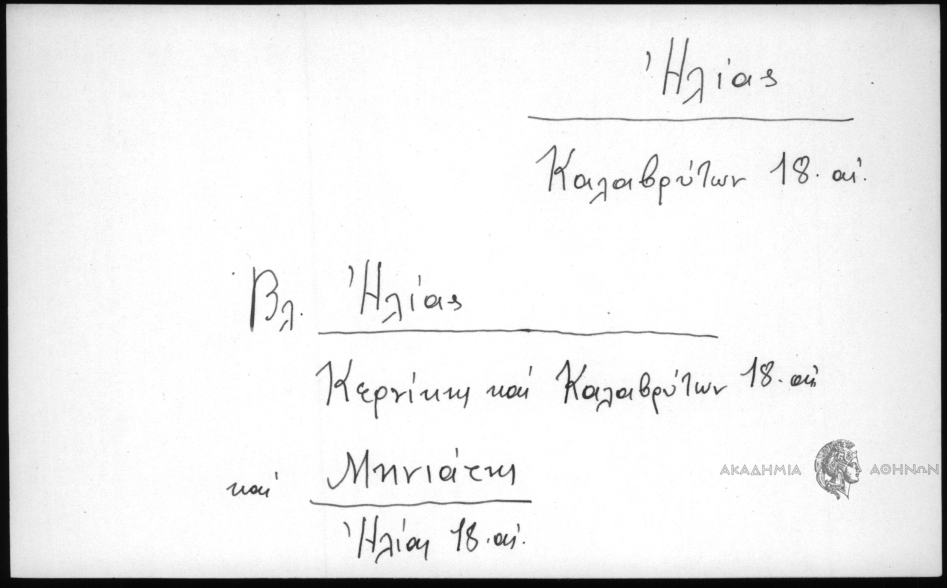 Ἠλίας
Καλαβρύτων 18. αἰ.
Βλ. Ἠλίας
Κερνίκης καί Καλαβρύτων 18. αἰ.
καί Μηνιάτης
Ἠλίας 18. αἰ.
ΑΚΑΔΗΜΙΑ ΑΘΗΝΩΝ